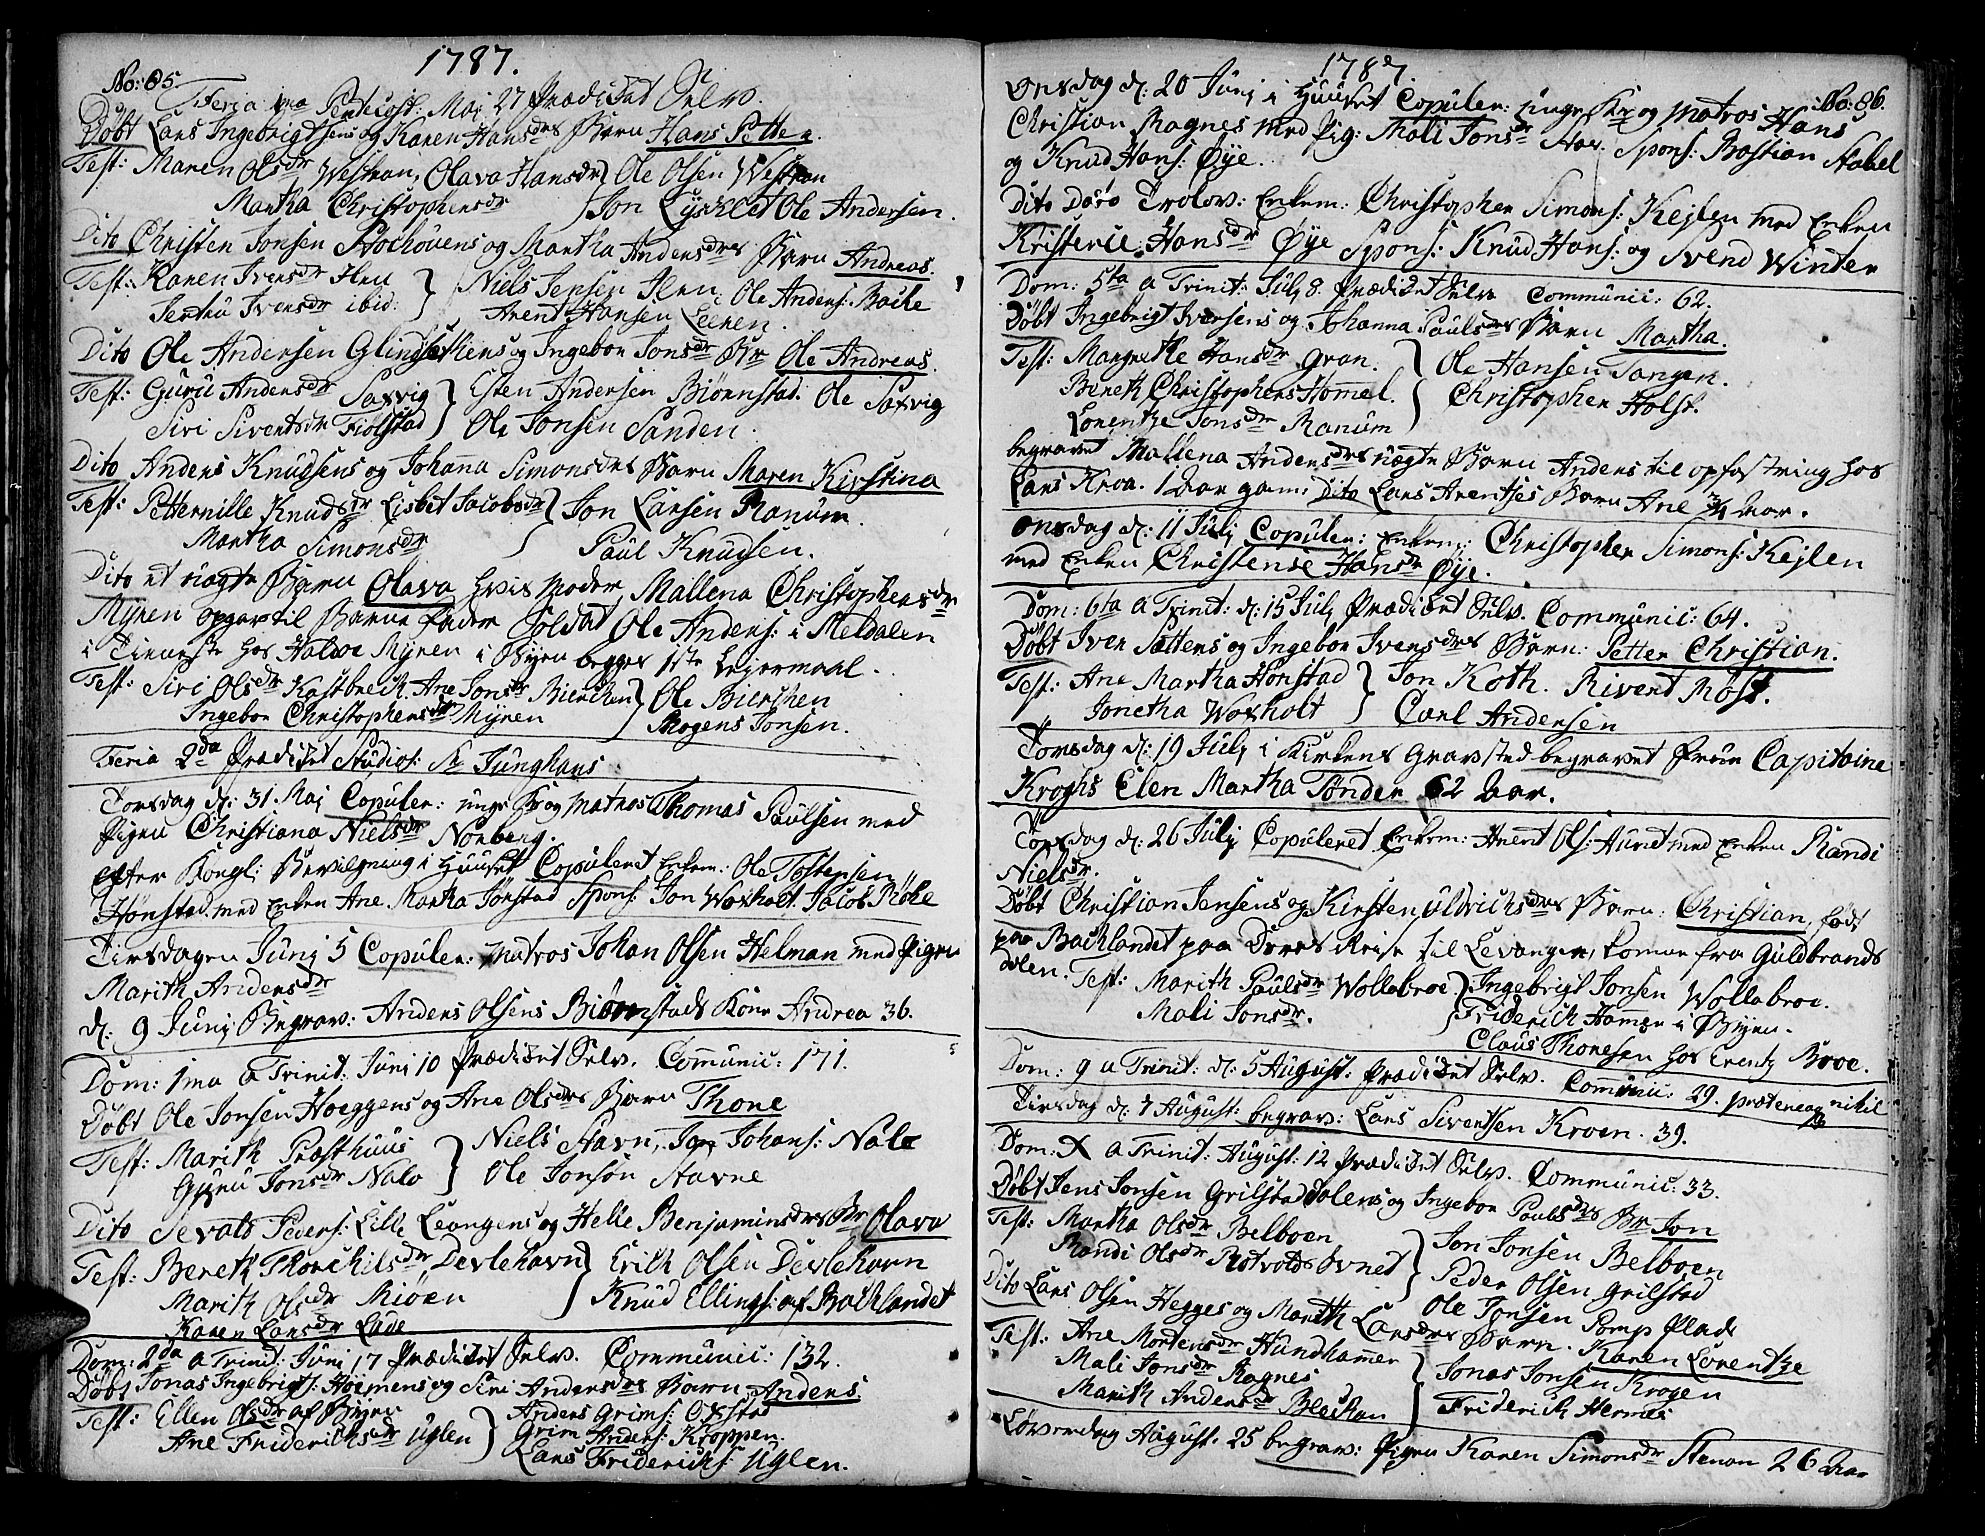 1787.
No: 85.
Feria 1ma Pentecost: Maj 27 Prædicket Selv.
Døbt Lars Ingebrigtsens og Karen Hansdr Barn Hans Petter.
Test: Maren Olsdr Westran, Olava Hansdr } Ole Olsen Westran
Martha Christophersdr } Jon Lysklet Ole Andersen.
Dito Christen Jonsen Stochouens og Martha Andersdrs Barn Andreas.
Test: Karen Iversdr Hen } Niels Jensen Hen, Ole Anders: Bache
Iversdr ibid: } Arent Hansen Leeren.
Dito Ole Andersen og Ingebor Jonsdr Br Ole Andreas.
Test: Guru Andersdr Saxvig } Esten Andersen Biørnstad. Ole Saxvig
Siri Sivertsdr Fiolstad } Ole Jonsen Sanden.
Dito Anders Knudsens og Johana Simonsdrs Barn Maren Kirstina
Test: Petternille Knudsdr Lisbet Jacobsdr } Jon Larsen Ranum.
Martha Simonsdr } Paul Knudsen.
Dito et uægte Barn Olava hvis Moder Mallena Christophersdr
Myren opgav til Barne fader Soldat Ole Anders: i Meldalen
i Tieneste hos Haldoe Myren i Byen begges 1ste Leyermaal.
Test: Siri Olsdr Kastbreck. Ane Jonsdr Bierchen } Ole Bierchen
Ingebor Christophersdr Myren } Mogens Jonsen.
Feria 2da Prædicket Studios: Sr Junghans
Torsdag d: 31. Maj Copuler: unge Kr og Matros Thomas Paulsen med
Pigen Christiana Nielsdr Norberg.
Efter Kongl: Bevilgning i Huuset Copuleret Enkem: Ole Tostensen
Hønstad med Enken Ane Marta Jonstad Spons: Jon Woxholt. Jacob Røhe
Tirsdagen Junj 5 Copuler: Matros Johan Olsen Helman med Pigen
Marith Andersdr
d: 9 Junj Begrav: Anders Olsens Biørnstads Kone Andrea 36.
Dom: 1ma a Trinit: Juni 10 Prædicket Selv. Communic: 171.
Døbt Ole Jonsen Hoeggens og Ane Olsdrs Barn Thone
Test: Marith Præsthuus } Niels Stavn, Jon Johans: Nalo
Guru Jonsdr Nalo } Ole Jonson Stavne
Dito Sevald Peders: Lille Leangens og Helie Benjaminsdrs Br Olava
Test: Bereth Thorchilsdr Devlehavn } Erich Olsen Devlehavn
Marith Olsdr Miøen } Knud Ellings: af Bachlandet
Karen Larsdr Lade
Dom: 2da a Trinit: Juni 17 Prædicket Selv. Communic: 132.
Døbt Jonas Ingebrigts: Hoiemens og Siri Andersdrs Barn Anders.
Test: Ellen Olsdr af Byen } Anders Grims: Oxstad
Ane Friderichsdr Uglen } Grim Anders: Kroppen.
Lars Friderichs: Uglen.
1787.
No: 86.
Onsdag d: 20 Junj i Huuset Copuler: unge Kr og Matros Hans
Christian Ragnes med Pig: Mali Jonsdr Spons: Bastian Stabel
og Knud Hans: Øye.
Dito Dato Trolov: Enkem: Christopher Simons: Kejlen med Enken
Kristense Hansdr Øye Spons: Knud Hans: og Svend Winter
Dom: 5ta a Trinit: July 8. Prædicket Selv Communic: 62.
Døbt Ingebrigt Iversens og Johanna Paulsdrs Barn Martha.
Test: Margrethe Hansdr Gran. } Ole Hansen Tangen.
Bereth Christophers Hommel. } Christopher Holst.
Lorentze Jonsdr Ranum
begravet Mallena Andersdrs uægte Barn Anders til opfostring hos
Lars Kroa. 1 Aar gam: Dito Lars Arentses Barn Ane 3/4 Aar.
Onsdag d: 11 July Copuler: Enkem: Christopher Simons: Kejlen
med Enken Christense Hansdr Øye.
Dom: 6ta a Trinit: d: 15 July Prædicket Selv. Communic: 64.
Døbt Iver Pettens og Ingebor Iversdrs Barn: Petter Christian.
Test: Ane Martha Hønstad } Jon Koth. Sivert Røst.
Jonetha Woxholt } Carl Andersen
Torsdag d: 19 July i Kirkens Gravsted begravet Frue Capitaine
Kroghs Elen Martha Tønder 62 Aar.
Torsdag d: 26 July Copuleret Enkem: Arent Ols: Hunet med Enken Randi
Nielsdr.
Døbt Christian Jensens og Kirsten Uldrichsdrs Barn: Christian, født
paa Bachlandet paa Deres Reise til Levanger, komne fra Guldbrands
dalen: Test: Marith Paulsdr Wollabroe } Ingebrigt Jonsen Wollabroe.
Mali Jonsdr. } Friderich Hamer i Byen.
Claus Thonesen hos Erentz Broe.
Dom: 9 a Trinit: d: 5 August: Prædicket Selv. Comunic: 29. præterea nihil
Tirsdag d: 7 August: begrav: Lars Sivertsen Kroen. 39.
Dom: X a Trinit: August: 12 Prædicket Selv. Communic: 33.
Døbt Jens Jonsen Grilstaddalens og Ingebor Paulsdrs Br Jon
Test: Martha Olsdr Belboen } Jon Jonsen Belboen
Randi Olsdr Rotvolds Ovnet } Peder Olsen Grilstad
Ole Jonsen Pomp Plads
Dito Lars Olsen Hegges og Marith Larsdrs Barn. Karen Lorentze
Test: Ane Mortensdr Hundhamer } Jonas Jonsen Krogen
Mali Jonsdr Ragnes } Friderich Hermes
Marith Andersdr Bleckan
Løverdag August: 25 begrav: Pigen Karen Simonsdr Stenan 26 Aar